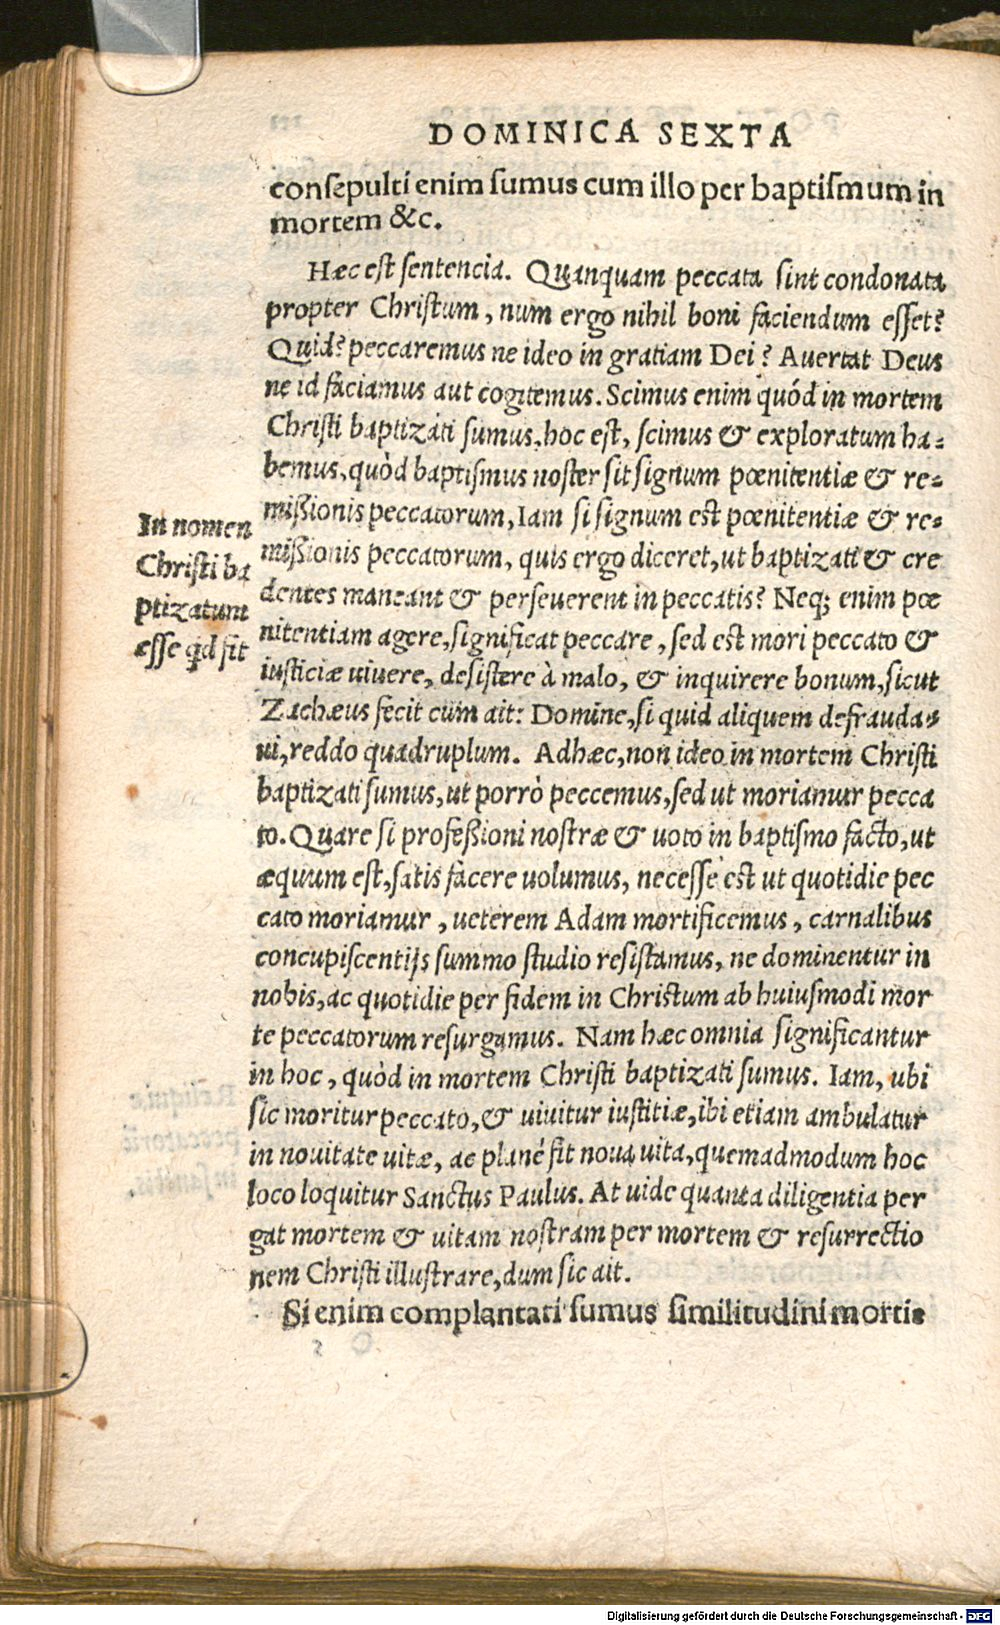 DOMINICA SEXTA
conſepulti enim ſumus cum illo per baptiſmum in
mortem &c.
Hæc eſt ſentencia. Quanquam peccata ſint condonata
propter Chriſtum, num ergo nihil boni faciendum eſſet?
Quid? peccaremus ne ideo in gratiam Dei? Auertat Deus
ne id faciamus aut cogitemus. Scimus enim quód in mortem
Chriſti baptizati ſumus, hoc eſt, ſcimus & exploratum ha-
bemus, quòd baptiſmus noſter ſit ſignum pœnitentiæ & re-
mißionis peccatorum, Iam ſi ſignum eſt pœnitentiæ & re-
mißionis peccatorum, quis ergo diceret, ut baptizati & cre
dentes maneant & perſeuerent in peccatis? Neq; enim pœ
nitentiam agere, ſignificat peccare, ſed eſt mori peccato &
iuſticiæ uiuere, deſiſtere à malo, & inquirere bonum, ſicut
Zachæus fecit cùm ait: Domine, ſi quid aliquem defrauda-
ui, reddo quadruplum. Adhæc, non ideo in mortem Chriſti
baptizati ſumus, ut porrò peccemus, ſed ut moriamur pecca
to. Quare ſi profeßioni noſtræ & uoto in baptiſmo facto, ut
æquum eſt, ſatis facere uolumus, neceſſe eſt ut quotidie pec
cato moriamur, ueterem Adam mortificemus, carnalibus
concupiſcentijs ſummo ſtudio reſiſtamus, ne dominentur in
nobis, ac quotidie per fidem in Chriſtum ab huiuſmodi mor
te peccatorum reſurgamus. Nam hæc omnia ſignificantur
in hoc, quòd in mortem Chriſti baptizati ſumus. Iam, ubi
ſic moritur peccato, & uiuitur iuſtitiæ, ibi etiam ambulatur
in nouitate uitæ, ac planè fit noua uita, quemadmodum hoc
loco loquitur Sanctus Paulus. At uide quanta diligentia per
gat mortem & uitam noſtram per mortem & reſurrectio
nem Chriſti illuſtrare, dum ſic ait.
Si enim complantati ſumus ſimilitudini mortis
In nomen
Chriſti ba
ptizatum
eſſe qd ſit
Digitalisierung gefördert durch die Deutsche Forschungsgemeinschaft - DFG